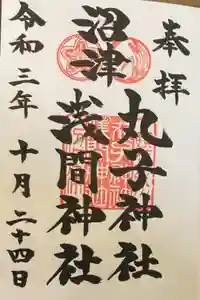 奉拝
沼津
丸子神社
浅間神社
令和三年十月二十四日